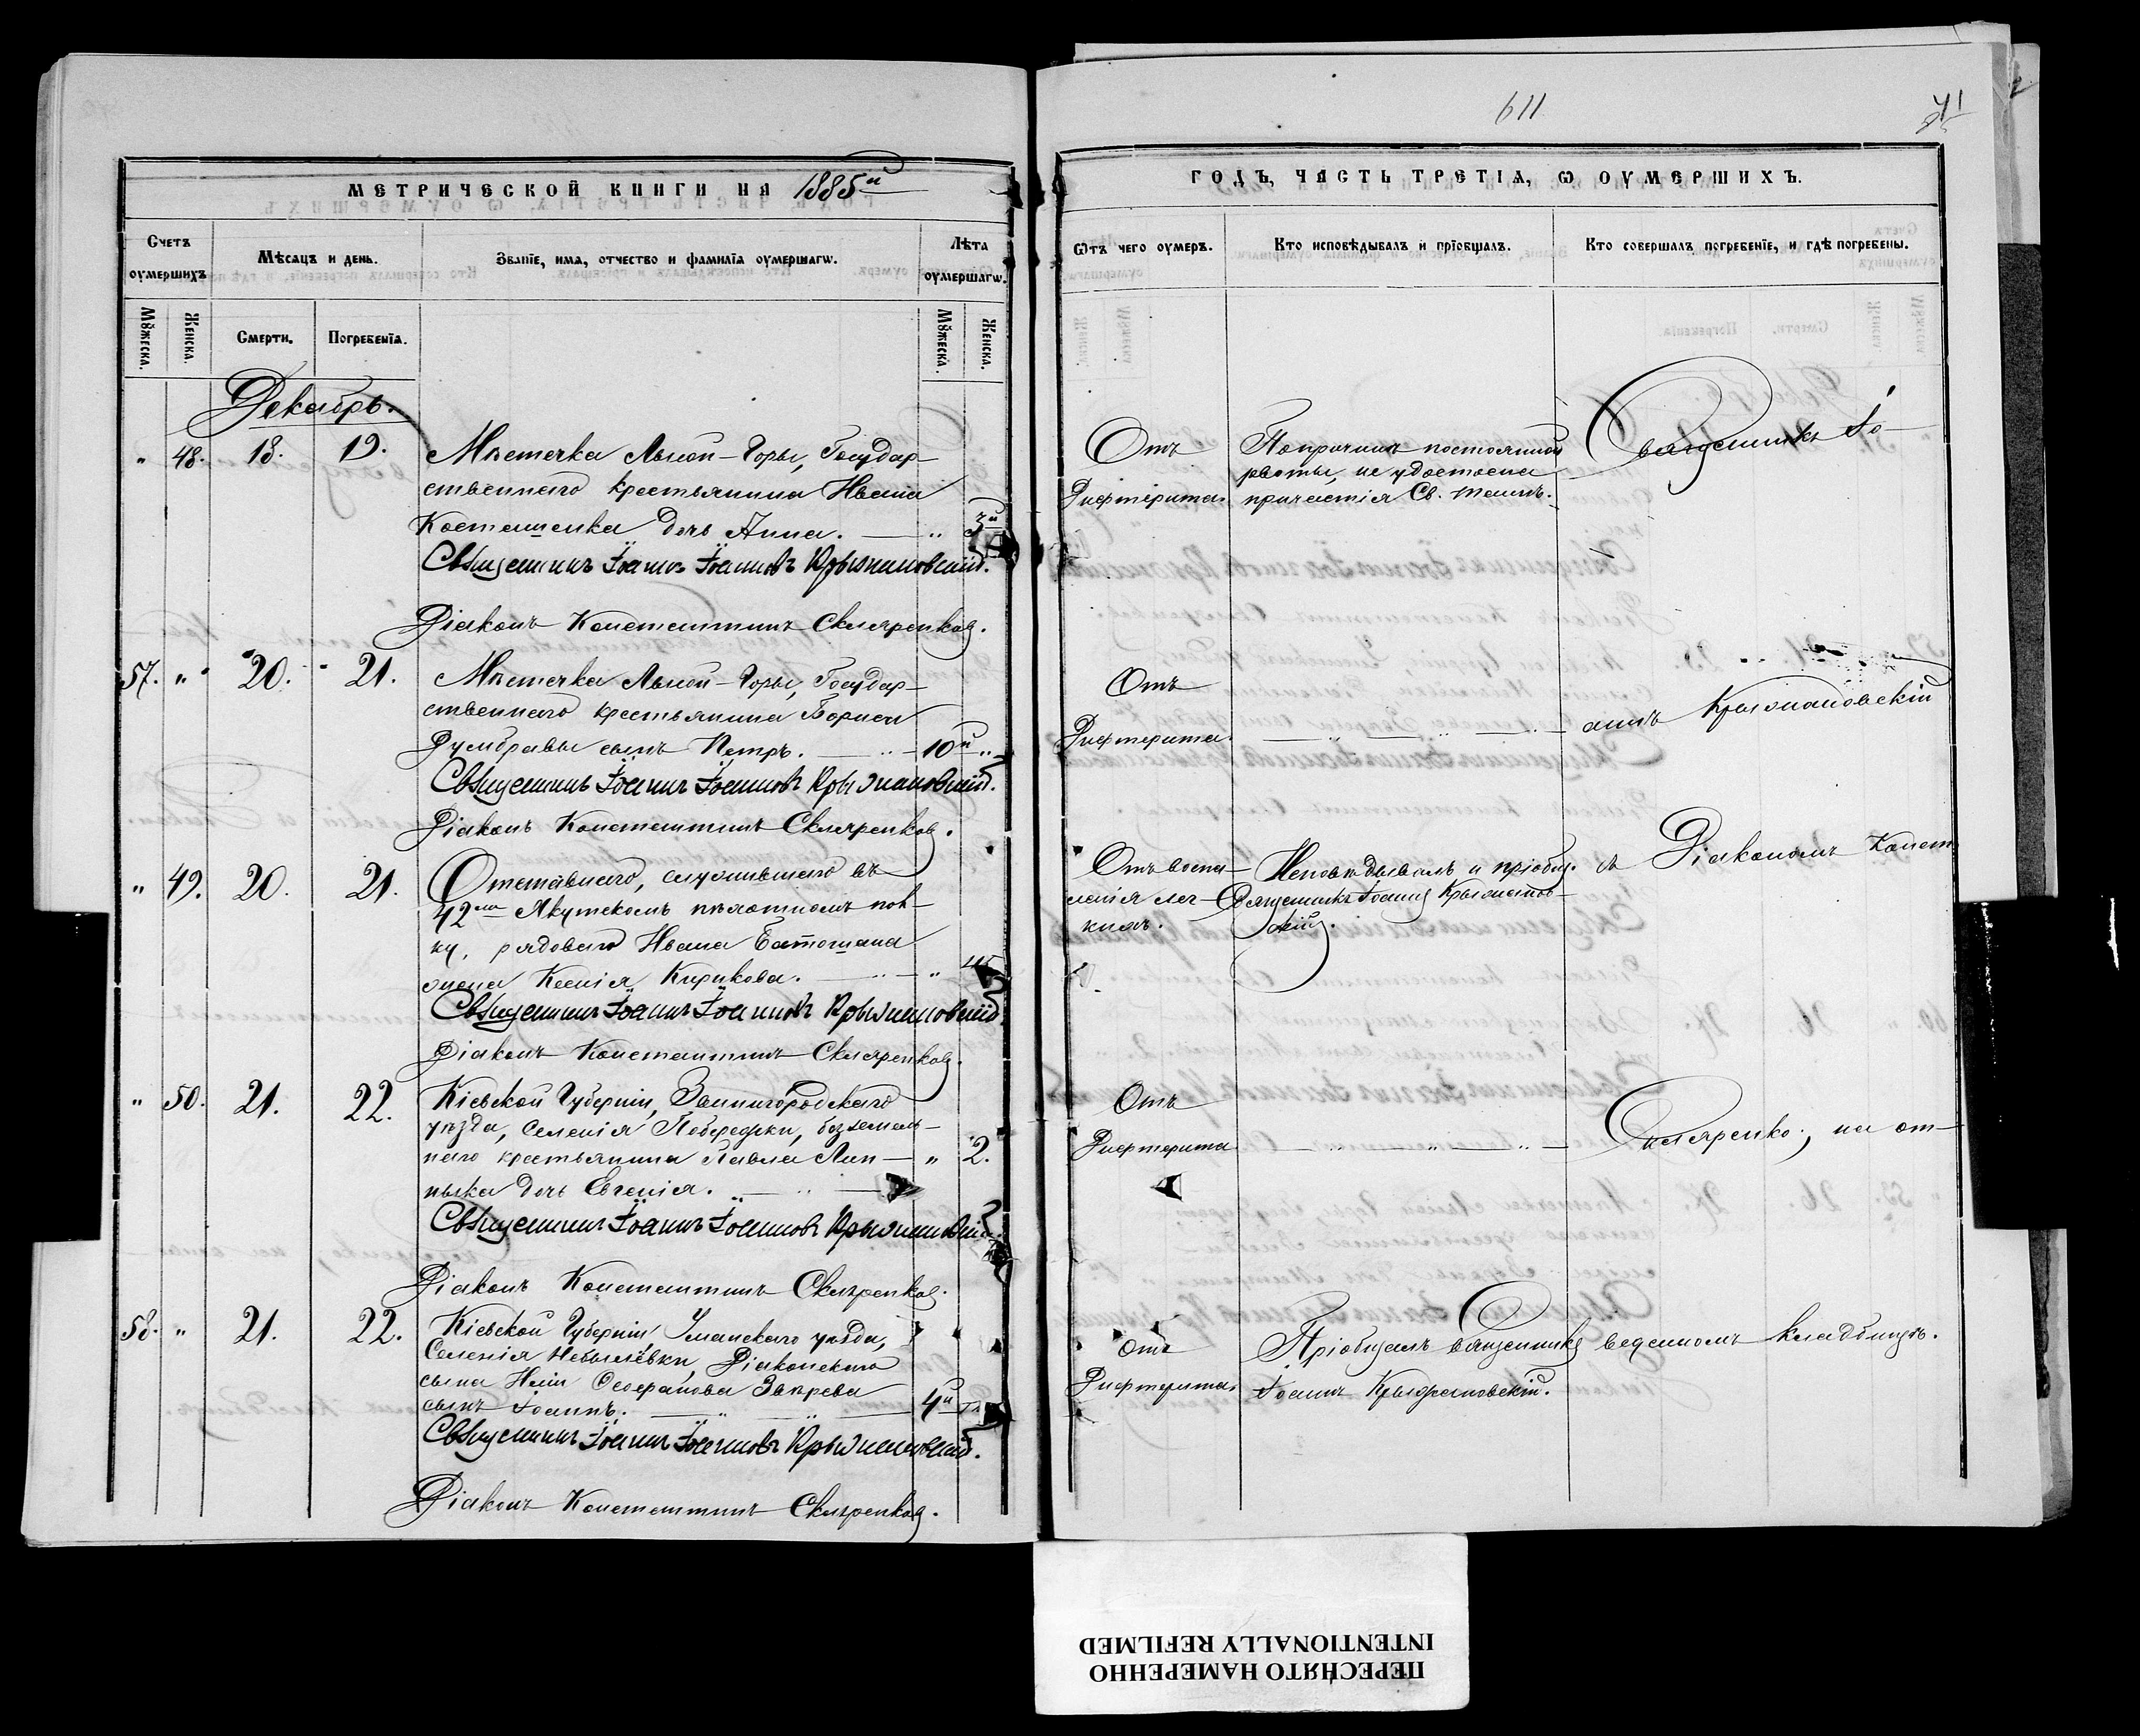 611
71
МЕТРИЧЕСКОЙ КНИГИ НА 1885й
ГОДЪ, ЧАСТЬ ТРЕТІА, Ѡ ОУМЕРШИХЪ.
Счетъ оумершихъ
Мѣсяцъ и день.
Званїе, имѧ, отчество и фамилїа оумершагѡ.
Лѣта оумершагѡ.
Мꙋжеска.
Женска.
Смерти.
Погребенїѧ.
Мꙋжеска.
Женска.
Ѿтъ чего оумеръ.
Кто исповѣдывалъ и прїобщалъ.
Кто совершалъ погребенїе, и гдѣ погребены.
Декабрь.
" 48. 18. 19.
Мѣстечка Лысой-Горы, Государ-
ственнаго крестьянина Ивана
Косташенка дочь Анна. " 3й
Священникъ Іоаннъ Іоанновъ Крыжановскій.
Діаконъ Константинъ Скляренко.
Отъ
Дифтерита
По причинѣ постоянной
рвоты, не удостоена
причастія Св. таинъ.
Священникъ Іо-
57. " 20. 21.
Мѣстечка Лысой-Горы, Государ-
ственнаго крестьянина Бориса
Думбравы сынъ Петръ. 10й "
Священникъ Іоаннъ Іоанновъ Крыжановскій.
Діаконъ Константинъ Скляренко.
Отъ
Дифтерита.
аннъ Крыжановскій
" 49. 20. 21.
Отставнаго, служившаго въ
42мъ Якутскомъ пѣхотномъ пол-
ку, рядоваго Ивана
жена Ксенія Кирикова. " 45
Священникъ Іоаннъ Іоанновъ Крыжановскій
Діаконъ Константинъ Скляренко.
Отъ воспа-
ленія лег-
кихъ.
Исповѣдывалъ и пріобщ.
Священникъ Іоаннъ Крыжанов-
скій.
съ Діакономъ Конст.
" 50. 21. 22.
Кіевской Губерніи, Звенигородскаго
уѣзда, Селенія Побережки, безземель-
наго крестьянина Павла Лип- " 2.
ныка дочь Евгенія.
Священникъ Іоаннъ Іоанновъ Крыжановскій.
Діаконъ Константинъ Скляренко.
Отъ
Дифтерита
Скляренко, на от-
58. " 21. 22.
Кіевской Губерніи Уманскаго уѣзда,
Селенія Небылёвки, Діаконскаго
сына Иліи Ѳеофанова Закрева
сынъ Іоаннъ. 4й
Священникъ Іоаннъ Іоанновъ Крыжановскій.
Діаконъ Константинъ Скляренко.
Отъ
Дифтерита
Пріобщалъ Священникъ
Іоаннъ Крыжановскій.
веденномъ кладбищѣ.
ПЕРЕСНЯТО НАМЕРЕННО
INTENTIONALLY REFILMED